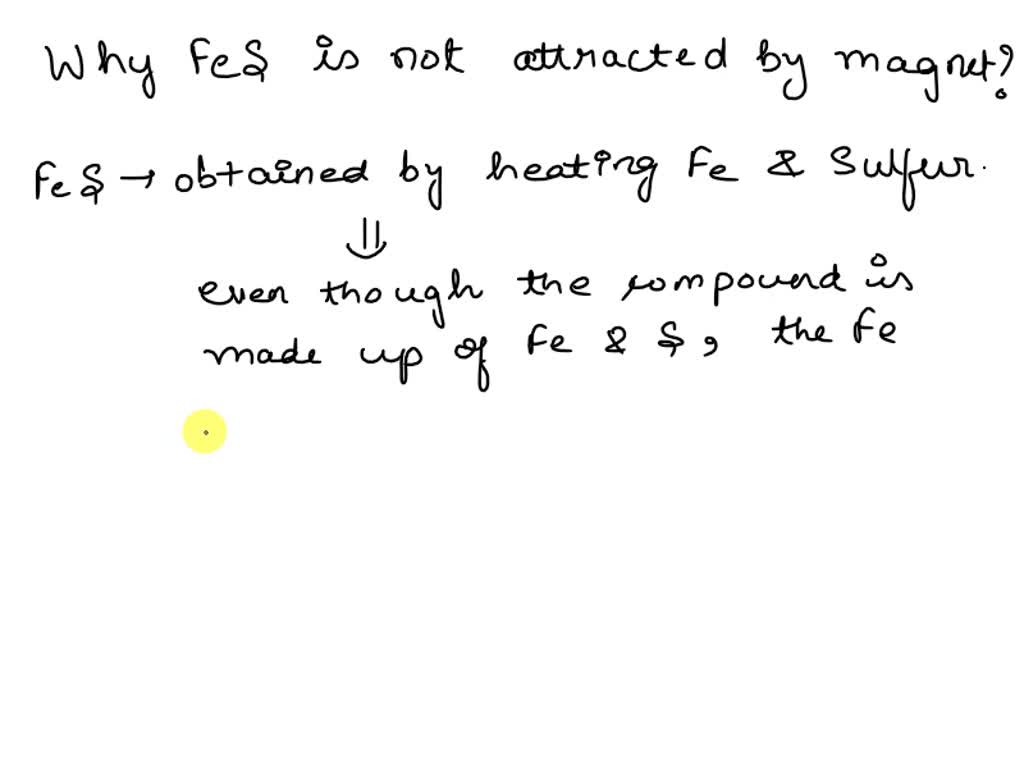 Why FeS is not attracted by magnet?
FeS → obtained by heating Fe & Sulfur.
⇓
even though the compound is
made up of Fe & S, the Fe